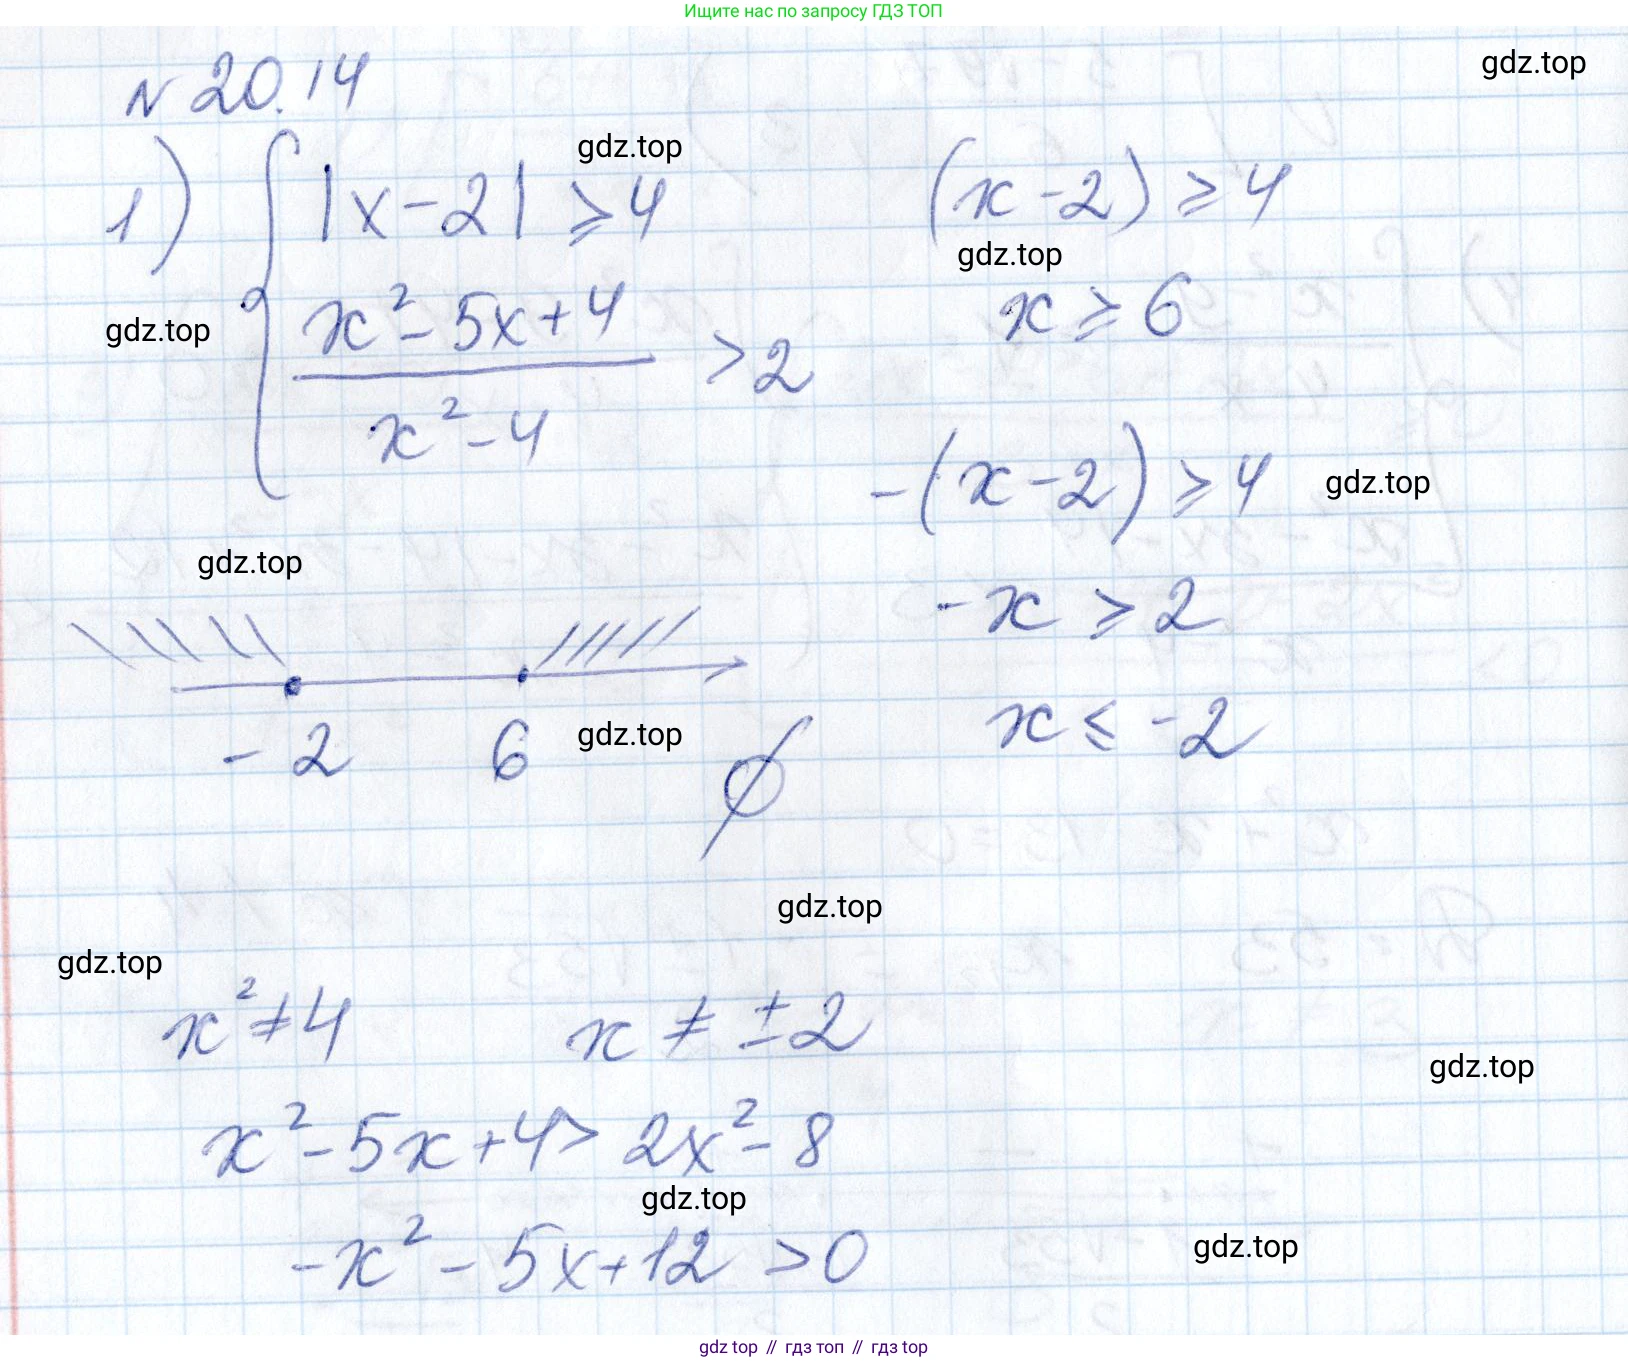 Ищите нас по запросу ГДЗ ТОП
gdz.top
N 20.14
gdz.top
1) { |x-2| ⩾ 4
(x-2) ⩾ 4
gdz.top
x²-5x+4
x ⩾ 6
gdz.top
> 2
x²-4
-(x-2) ⩾ 4
gdz.top
gdz.top
-x ⩾ 2
x ⩽ -2
-2 6
gdz.top
∅
gdz.top
gdz.top
x² ≠ 4 x ≠ ±2
gdz.top
x²-5x+4 > 2x²-8
gdz.top
-x²-5x+12 > 0
gdz.top
gdz top // гдз топ // gdz top